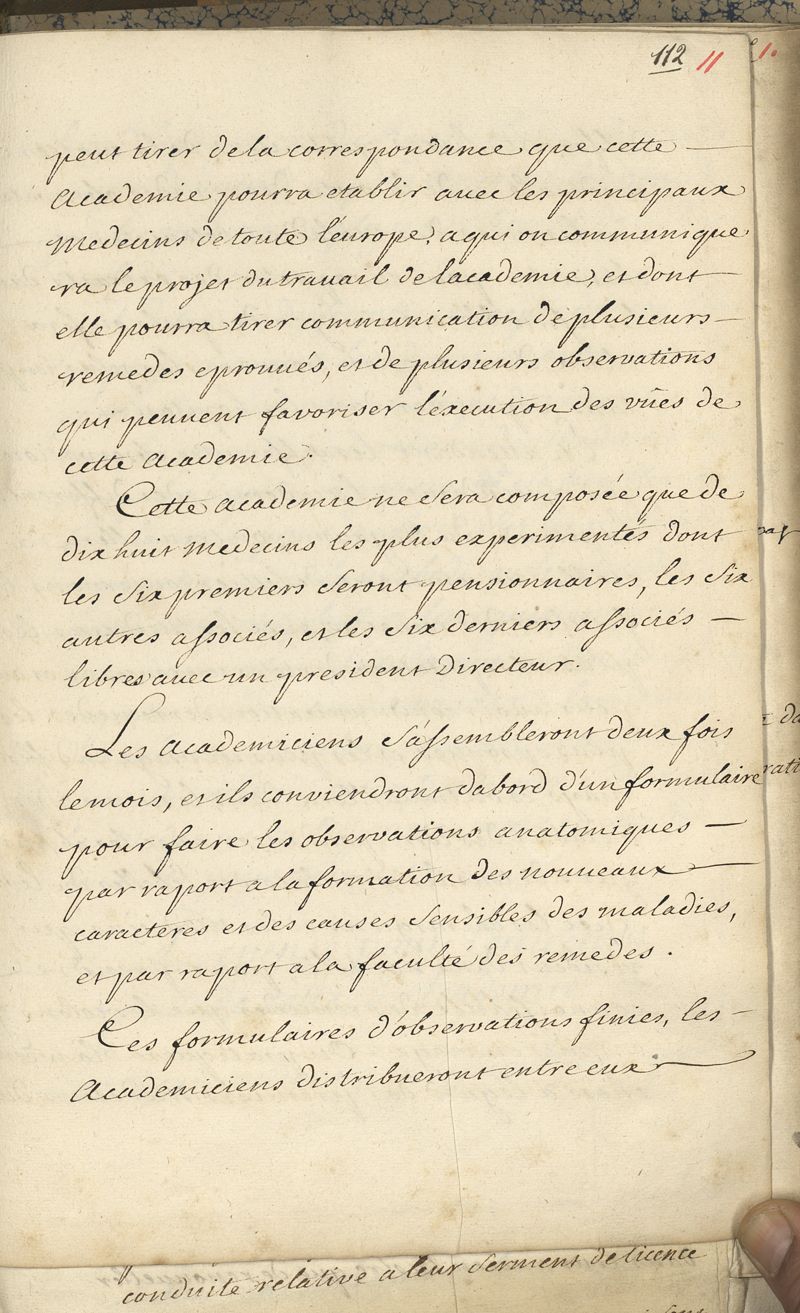 112 11
peut tirer de la correspondance que cette
Academie pourra etablir avec les principaux
Medecins de toute l'europe, a qui on communique
ra le projet du travail de lacademie, et dont
elle pourra tirer communication de plusieurs
remedes eprouvés, et de plusieurs observations
qui peuvent favoriser l'éxecution des vües de
cette Academie.
Cette academie ne sera composée que de
dix huit medecins les plus experimentés dont
les six premiers seront pensionnaires, les six
autres associés, et les six derniers associés
libres avec un president Directeur.
Les academiciens s'assembleront deux fois
le mois, et ils conviendront dabord d'un formulaire
pour faire les observations anatomiques
par raport a la formation des nouveaux
caracteres et des causes sensibles des maladies,
et par raport a la faculté des remedes.
Ces formulaires d'observations finies, les
Academiciens distribueront entre eux
conduite relative a leur serment de licence